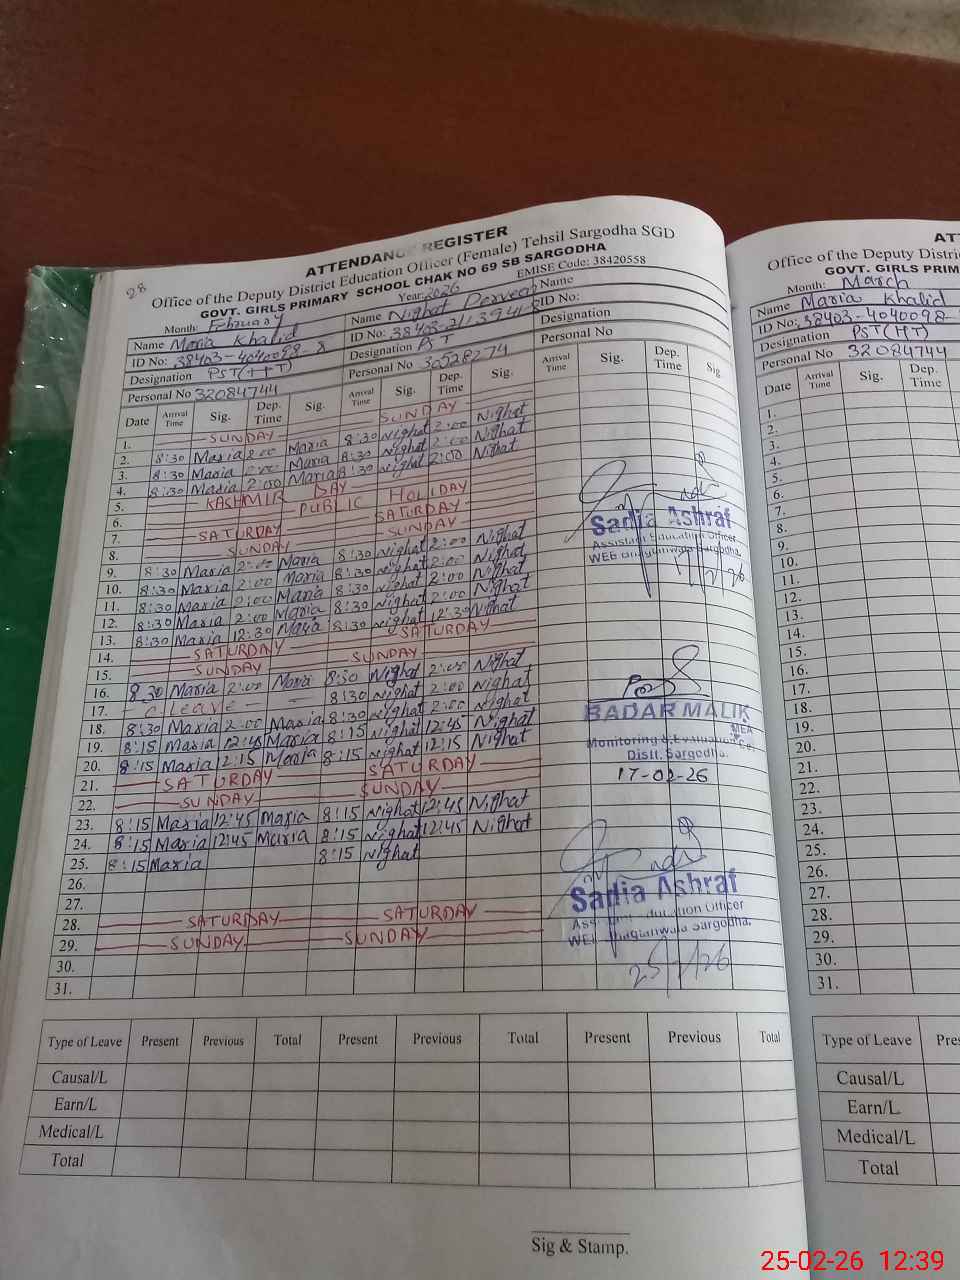 28
ATTENDANCE REGISTER
Office of the Deputy District Education Officer (Female) Tehsil Sargodha SGD
GOVT. GIRLS PRIMARY SCHOOL CHAK NO 69 SB SARGODHA
Month: February Year: 2026 EMISE Code: 38420558
Name Maria Khalid Name Nighat Perveen Name
ID No: 38403-4040098-8 ID No: ID No:
Designation PST(HT) Designation PST Designation
Personal No 32084744 Personal No 30528274 Personal No
Date Arrival Time Sig. Dep. Time Sig. Arrival Time Sig. Dep. Time Sig. Arrival Time Sig. Dep. Time Sig.
1. SUNDAY SUNDAY
2. 8:30 Maria 2:00 Maria 8:30 Nighat 2:00 Nighat
3. 8:30 Maria 2:00 Maria 8:30 Nighat 2:00 Nighat
4. 8:30 Maria 2:00 Maria 8:30 Nighat 2:00 Nighat
5. KASHMIR DAY
6. PUBLIC HOLIDAY
7. SATURDAY SATURDAY
8. SUNDAY SUNDAY
9. 8:30 Maria 2:00 Maria 8:30 Nighat 2:00 Nighat
10. 8:30 Maria 2:00 Maria 8:30 Nighat 2:00 Nighat
11. 8:30 Maria 2:00 Maria 8:30 Nighat 2:00 Nighat
12. 8:30 Maria 2:00 Maria 8:30 Nighat 2:00 Nighat
13. 8:30 Maria 12:30 Maria 8:30 Nighat 12:30 Nighat
14. SATURDAY SATURDAY
15. SUNDAY SUNDAY
16. 8:30 Maria 2:00 Maria 8:30 Nighat 2:00 Nighat
17. C Leave 8:30 Nighat 2:00 Nighat
18. 8:30 Maria 2:00 Maria 8:30 Nighat 2:00 Nighat
19. 8:15 Maria 12:45 Maria 8:15 Nighat 12:45 Nighat
20. 8:15 Maria 12:15 Maria 8:15 Nighat 12:15 Nighat
21. SATURDAY SATURDAY
22. SUNDAY SUNDAY
23. 8:15 Maria 12:45 Maria 8:15 Nighat 12:45 Nighat
24. 8:15 Maria 12:45 Maria 8:15 Nighat 12:45 Nighat
25. 8:15 Maria 8:15 Nighat
26.
27.
28. SATURDAY SATURDAY
29. SUNDAY SUNDAY
30.
31.
Sadia Ashraf
Assistant Education Officer
WEE Bhagtanwala Sargodha.
BADAR MALIK
MEA
Monitoring & Evaluation
Distt. Sargodha.
17-02-26
Sadia Ashraf
Assistant Education Officer
WEE Bhagtanwala Sargodha.
25/2/26
Type of Leave Present Previous Total Present Previous Total Present Previous Total
Causal/L
Earn/L
Medical/L
Total
Sig & Stamp.
Office of the Deputy District
GOVT. GIRLS PRIM
Month: March
Name Maria Khalid
ID No: 38403-4040098-
Designation PST(HT)
Personal No 32084744
Date Arrival Time Sig. Dep. Time
1.
2.
3.
4.
5.
6.
7.
8.
9.
10.
11.
12.
13.
14.
15.
16.
17.
18.
19.
20.
21.
22.
23.
24.
25.
26.
27.
28.
29.
30.
31.
Type of Leave
Causal/L
Earn/L
Medical/L
Total
25-02-26 12:39